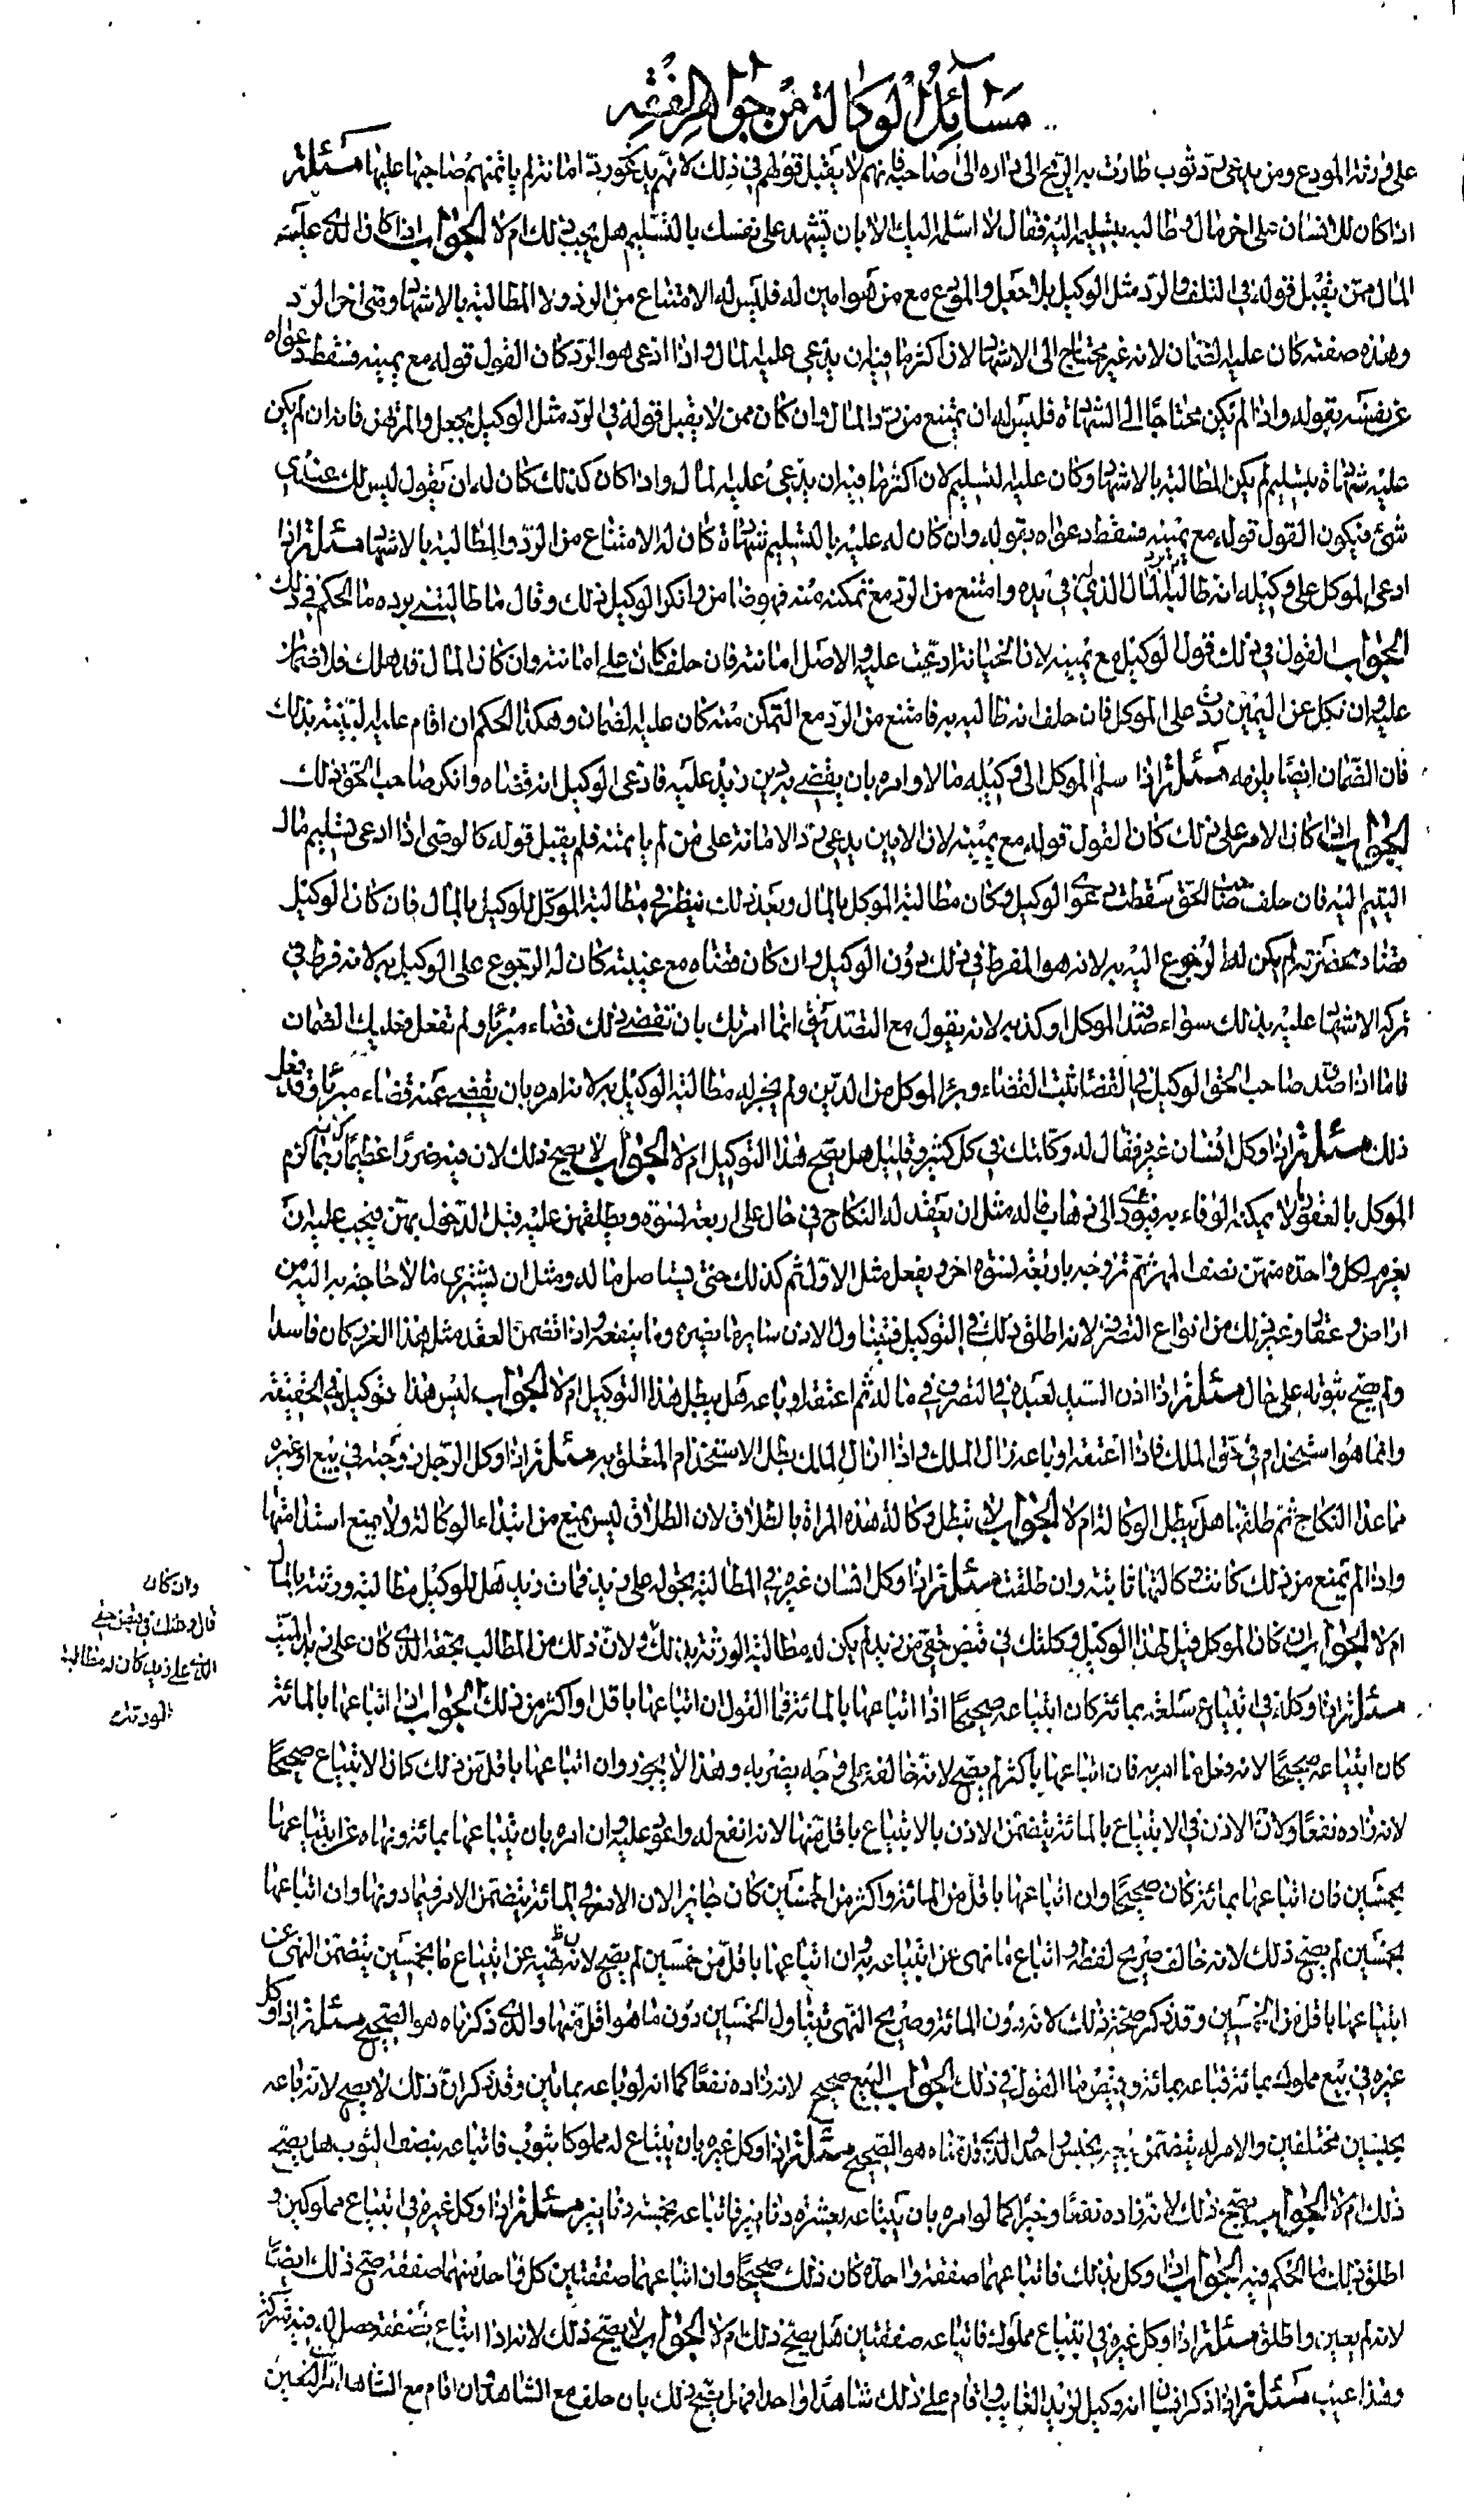 مسائل الوكالة من جواهر الفقه
على ورثة المودع ومن يدعى رد ثوب طارت به الريح الى داره الى صاحبه فانهم لا يقبل قولهم في ذلك لانهم يدعون رد امانة لم ياتمنهم صاحبها عليها مسئلة
اذا كان لانسان على اخر مال وطالبه بتسليمه اليه فقال لا اسلمه اليك الا بان تشهد على نفسك بالتسليم هل يجب ذلك ام لا الجواب اذا كان الذى عليه
المال ممن يقبل قوله في التلف والرد مثل الوكيل بلا جعل والمودع مع من هو امين له فليس له الامتناع من الرد ولا المطالبة بالاشهاد ومتى اخر الرد
وهذه صفته كان عليه الضمان لانه غير محتاج الى الاشهاد لان اكثر ما فيه ان يدعى عليه المال واذا ادعى هو الرد كان القول قوله مع يمينه فتسقط دعواه
عن نفسه بقوله واذا لم يكن محتاجا الى الشهادة فليس له ان يمتنع من رد المال وان كان ممن لا يقبل قوله في الرد مثل الوكيل بجعل والمرتهن فانه ان لم يكن
عليه شهادة بتسليم لم يكن المطالبة بالاشهاد وكان عليه التسليم لان اكثر ما فيه ان يدعى عليه المال واذا كان كذلك كان له ان يقول ليس لك عندى
شئ فيكون القول قوله مع يمينه فتسقط دعواه بقوله وان كان له عليه بالتسليم شهادة كان له الامتناع من الرد والمطالبة بالاشهاد مسئلة اذا
ادعى الموكل على وكيله انه طالبه برد المال الذى له في يده وامتنع من الرد مع تمكنه منه فهو ضامن وانكر الوكيل ذلك وقال ما طالبتنى برده ما الحكم في ذلك
الجواب القول في ذلك قول الوكيل مع يمينه لان الخيانة ادعيت عليه والاصل امانته فان حلف كان على امانته وان كان المال قد هلك فلا ضمان
عليه وان نكل عن اليمين ردت على الموكل فان حلف انه طالبه به فامتنع من الرد مع التمكن منه كان عليه الضمان وهكذا الحكم ان اقام عليه البينة بذلك
فان الضمان ايضا يلزمه مسئلة اذا سلم الموكل الى وكيله مالا وامره بان يقضى به دين زيد عليه فادعى الوكيل انه قضاه وانكر صاحب الحق ذلك
الجواب اذا كان الامر على ذلك كان القول قوله مع يمينه لان الامين يدعى رد الامانة على من لم ياتمنه فلم يقبل قوله كالوصى اذا ادعى تسليم مال
اليتيم اليه فان حلف صاحب الحق سقطت دعوى الوكيل وكان مطالبة الموكل بالمال وبعد ذلك ينظر في مطالبة الموكل للوكيل بالمال فان كان الوكيل
قضاه بحضرته لم يكن له الرجوع اليه به لانه هو المفرط في ذلك دون الوكيل وان كان قضاه مع غيبته كان له الرجوع على الوكيل به لانه فرط في
تركه الاشهاد عليه بذلك سواء صدقه الموكل او كذبه لانه يقول مع التصديق انما امرتك بان تقضى ذلك قضاء مبرئا ولم تفعل فعليك الضمان
فاما اذا صدق صاحب الحق الوكيل في القضاء ثبت القضاء وبرأ الموكل من الدين ولم يجز له مطالبة الوكيل به لانه امره بان يقضى عنه قضاء مبرئا وقد فعل
ذلك مسئلة اذا وكل انسان غيره فقال له وكلتك في كل كثير وقليل هل يصح هذا التوكيل ام لا الجواب لا يصح ذلك لان فيه ضررا عظيما لانه ربما لزم
الموكل بالعقود ما لا يمكنه الوفاء به فيؤدى الى ذهاب ماله مثل ان يعقد له النكاح في حال على اربعة نسوة ويطلقهن عليه قبل الدخول بهن فيجب عليه ان
يغرم لكل واحدة منهن نصف المهر ثم تزوجه باربعة نسوة اخر ويفعل مثل الاول ثم كذلك حتى يستاصل ماله ومثل ان يشترى ما لا حاجة به اليه من
اراض وعقار وغير ذلك من انواع التصرف لانه اطلق ذلك في التوكيل فتناول الاذن سائر ما يضره وما ينفعه واذا تضمن العقد مثل هذا الغرر كان فاسدا
ولم يصح ثبوته على حال مسئلة اذا اذن السيد لعبده في التصرف في ماله ثم اعتقه او باعه هل يبطل هذا التوكيل ام لا الجواب ليس هذا بتوكيل في الحقيقة
وانما هو استخدام في حق الملك فاذا اعتقه او باعه زال الملك واذا زال الملك بطل الاستخدام المتعلق به مسئلة اذا وكل الرجل زوجته في بيع او غيره
ما عدا النكاح ثم طلقها هل يبطل الوكالة ام لا الجواب لا تبطل وكالة هذه المراة بالطلاق لان الطلاق ليس يمنع من ابتداء الوكالة ولا يمنع استدامتها
واذا لم يمنع من ذلك كانت وكالتها ثابتة وان طلقت مسئلة اذا وكل انسان غيره في المطالبة بحق له على زيد فمات زيد هل للوكيل مطالبة ورثته بالمال
ام لا الجواب ان كان الموكل قيل لهذا الوكيل وكلتك في قبض حقي من زيد لم يكن له مطالبة الورثة بذلك ولان ذلك من المطالب بحقه الذى كان على زيد الميت
وان كان
قال وكلتك في قبض حقى
الذى على زيد كان له مطالبة
الورثة
مسئلة اذا وكله في ابتياع سلعة بمائة كان ابتياعه صحيحا اذا ابتاعها بالمائة فما القول ان ابتاعها باقل او اكثر من ذلك الجواب اذا ابتاعها بالمائة
كان ابتياعه صحيحا لانه فعل ما امر به فان ابتاعها باكثر لم يصح لانه خالفه على وجه يضر به وهذا لا يجوز وان ابتاعها باقل من ذلك كان الابتياع صحيحا
لانه زاده نفعا ولان الاذن في الابتياع بالمائة يتضمن الاذن بالابتياع باقل منها لانه انفع له واعود عليه وان امره بان يبتاعها بمائة ونهاه عن ابتياعها
بخمسين فان ابتاعها بمائة كان صحيحا وان ابتاعها باقل من المائة واكثر من الخمسين كان جايزا لان الامر في المائة يتضمن الامر فيما دونها وان ابتاعها
بخمسين لم يصح ذلك لانه خالف صريح لفظه وابتاع ما نهى عن ابتياعه به وان ابتاعها باقل من خمسين لم يصح لان نهيه عن ابتياعها بخمسين يتضمن النهى عن
ابتياعها باقل من الخمسين وقد ذكر صحة ذلك لانه دون المائة وصريح النهى يتناول الخمسين دون ما هو اقل منها والذى ذكرناه هو الصحيح مسئلة اذا وكل
غيره في بيع مملوك بمائة فباعه بمائة وقميص ما القول في ذلك الجواب البيع صحيح لانه زاده نفعا كما انه لو باعه بمائتين وقد ذكر ان ذلك لا يصح لانه باعه
بجنسين مختلفين والامر له يتضمن بيعه بجنس واحد والذى قدمناه هو الصحيح مسئلة اذا وكل غيره بان يبتاع له مملوكا بثوب فابتاعه بنصف الثوب هل يصح
ذلك ام لا الجواب يصح ذلك لانه زاده نفعا وخيرا كما لو امره بان يبتاعه بعشرة دنانير فابتاعه بخمسة دنانير مسئلة اذا وكل غيره في ابتياع مملوكين و
اطلق ذلك ما الحكم فيه الجواب اذا وكل بذلك فابتاعهما صفقة واحدة كان ذلك صحيحا وان ابتاعهما صفقتين كل واحد منهما صفقة صح ذلك ايضا
لانه لم يعين واطلق مسئلة اذا وكل غيره في ابتياع مملوك فابتاعه صفقتين هل يصح ذلك ام لا الجواب لا يصح ذلك لانه اذا ابتاع نصفه حصل له فيه شركة
وهذا عيب مسئلة اذا ذكر انسان انه وكيل لزيد الغايب واقام على ذلك شاهدا واحدا فهل يصح ذلك بان حلف مع الشاهد وان اقام مع الشاهد امراتين